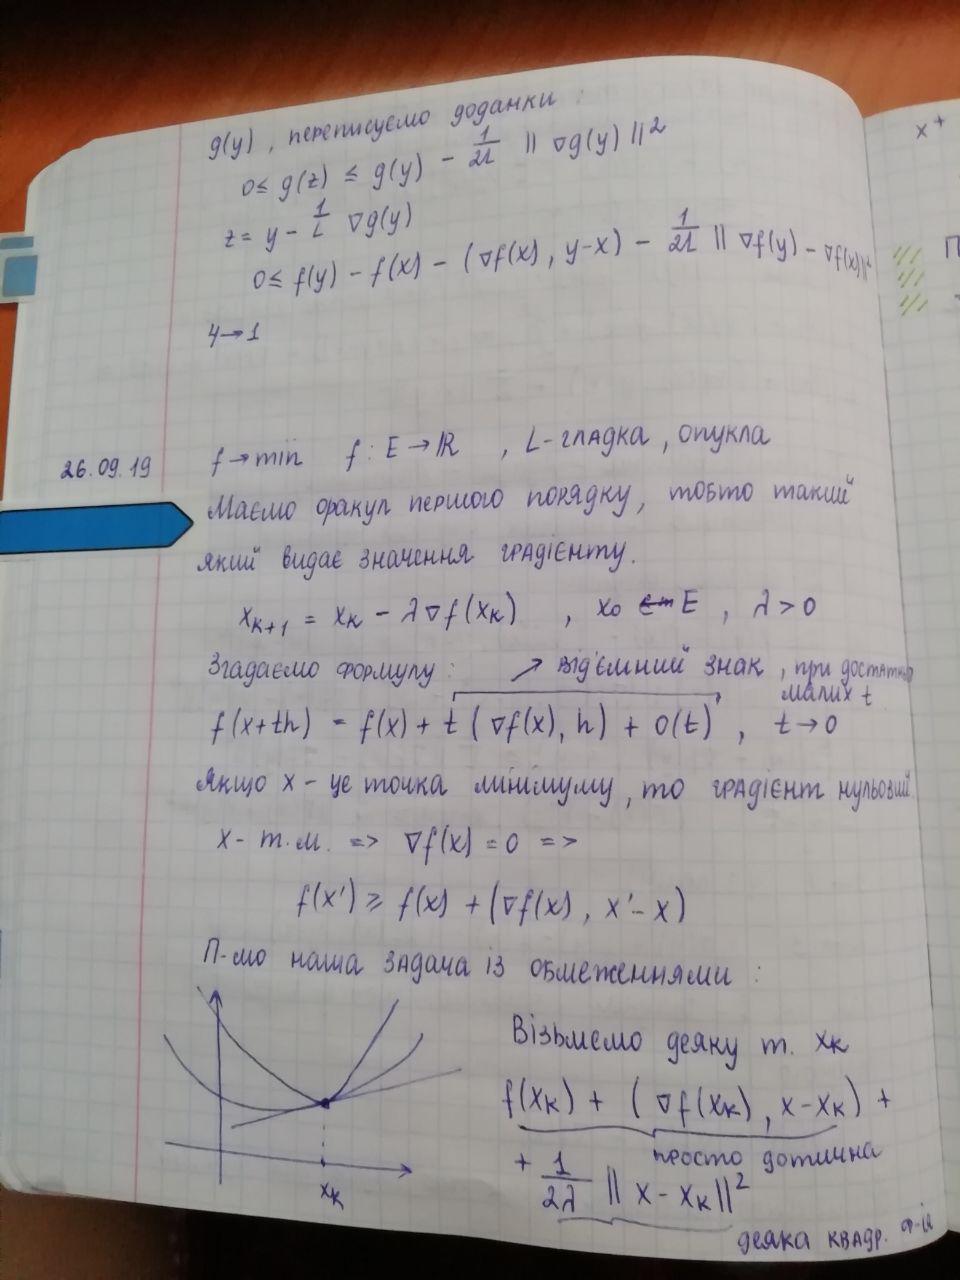 g(y), переписуємо доданки:
0 ≤ g(z) ≤ g(y) - 1/2L ||∇g(y)||²
z = y - 1/L ∇g(y)
0 ≤ f(y) - f(x) - (∇f(x), y-x) - 1/2L ||∇f(y) - ∇f(x)||²
4→1
26.09.19
f→min f: E→ℝ, L-гладка, опукла
Маємо оракул першого порядку, тобто такий
який видає значення градієнту.
x_{k+1} = x_k - λ∇f(x_k), x₀ E, λ > 0
Згадаємо формулу: ↗ від'ємний знак, при достатньо
малих t
f(x+th) = f(x) + t(∇f(x), h) + o(t), t→0
Якщо x - це точка мінімуму, то градієнт нульовий.
x - т.м. => ∇f(x) = 0 =>
f(x') ≥ f(x) + (∇f(x), x'-x)
П-мо наша задача із обмеженнями:
Візьмемо деяку т. x_k
f(x_k) + (∇f(x_k), x-x_k) +
просто дотична
+ 1/2λ ||x - x_k||²
деяка квадр. ф-ія
x_k
x⁺
П